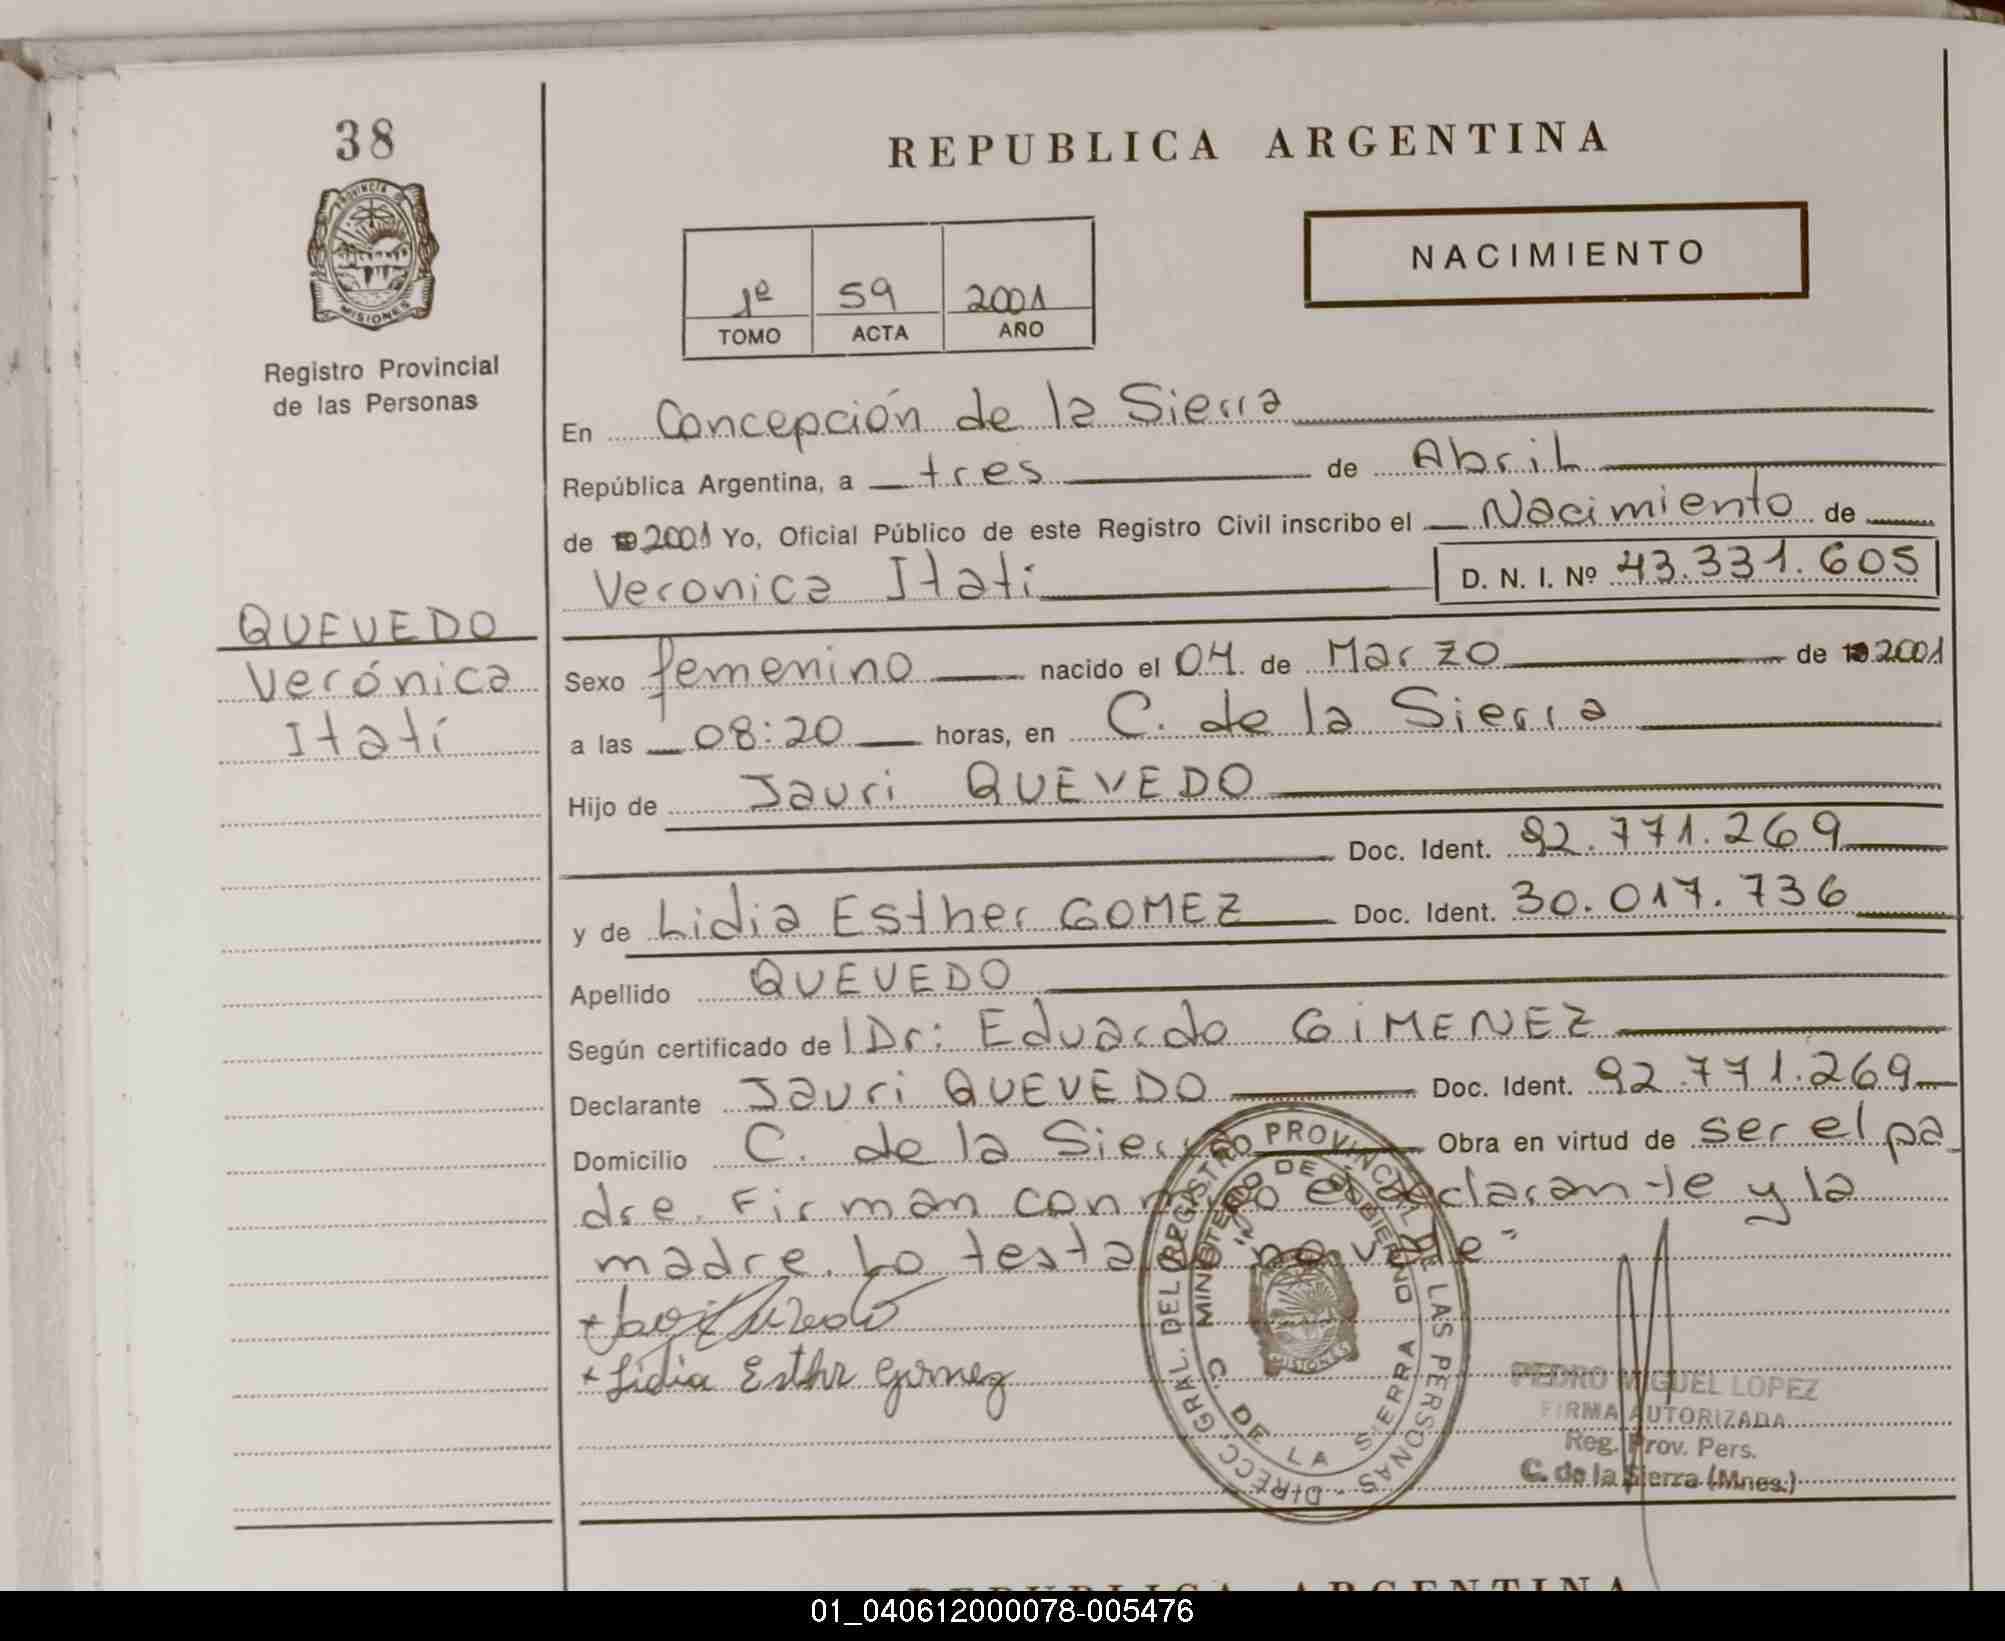 38
PROVINCIA DE
MISIONES
Registro Provincial
de las Personas
REPUBLICA ARGENTINA
NACIMIENTO
1º 59 2001
TOMO ACTA AÑO
En Concepción de la Sierra
República Argentina, a tres de Abril
de 2001 Yo, Oficial Público de este Registro Civil inscribo el Nacimiento de
Veronica Itati D. N. I. Nº 43.331.605
QUEVEDO
Verónica
Itatí
Sexo femenino nacido el 04 de Marzo de 2001
a las 08:20 horas, en C. de la Sierra
Hijo de Jauri QUEVEDO
Doc. Ident. 92.771.269
y de Lidia Esther GOMEZ Doc. Ident. 30.017.736
Apellido QUEVEDO
Según certificado de lDr: Eduardo GiMENEZ
Declarante Jauri QUEVEDO Doc. Ident. 92.771.269
Domicilio C. de la Sierra Obra en virtud de ser el pa_
dre. Firman conmigo el declaran-te y la
madre. Lo testado "no vale"
Lidia Esthr Gomez
DIRECC. GRAL. DEL REGISTRO PROVINCIAL DE LAS PERSONAS
MINISTERIO DE GOBIERNO
MISIONES
C. DE LA SIERRA
PEDRO MIGUEL LOPEZ
FIRMA AUTORIZADA
Reg. Prov. Pers.
C. de la Sierra (Mnes.)
REPUBLICA ARGENTINA
01_040612000078-005476